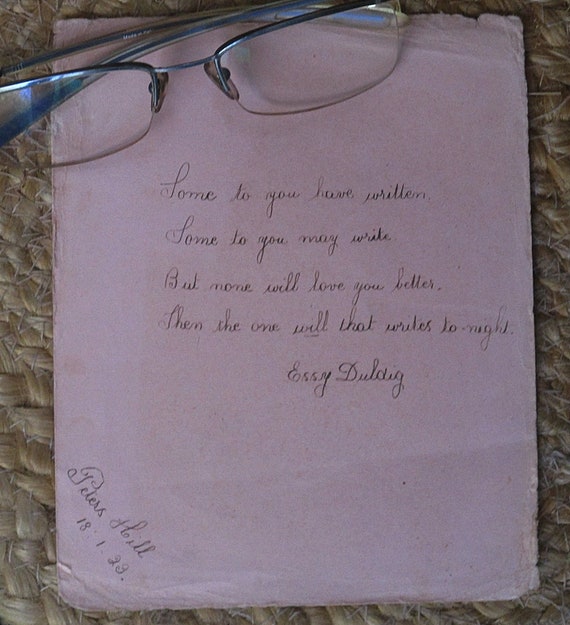 Some to you have written
Some to you may write.
But none will love you better.
Then the one will that writes to-night.
Essy Duldig
Peters Hill
18.1.23.